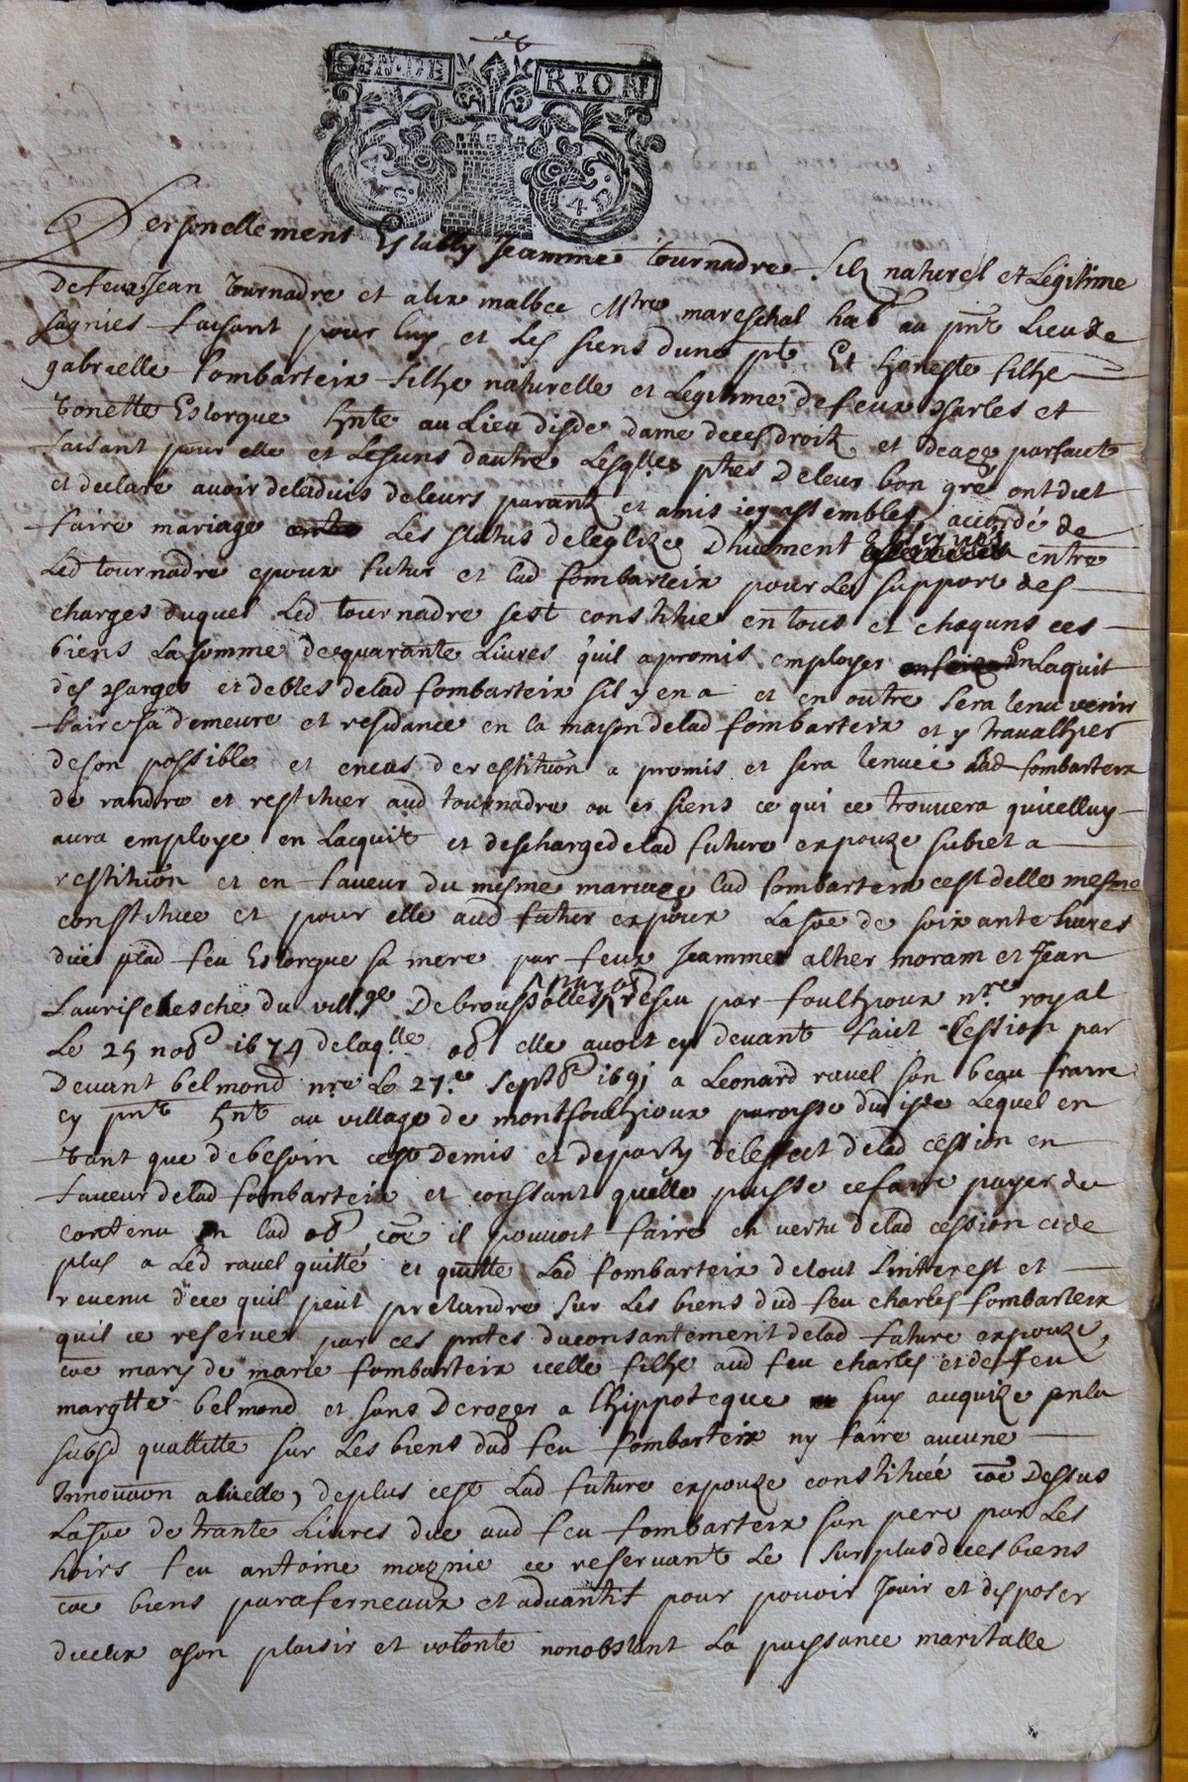 GEN. DE RION
Personellement Estably Jeamme tournadre filz naturel et Legitime
De feux Jean tournadre et alix malbec Mtre mareschal habt au pnt Lieu de
sagnies faisant pour luy et Les siens dune pt Et honeste filhe
gabrielle fombarteix filhe naturelle et Legitime de feux charles et
tonette Eslorgue hnte au Lieu disde dame de ces droitz et deage parfaict
faisant pour elle et Lesuns dautre Lesqlles pties De leur bon gré ont dict
et declaré avoir deladuis de leurs parantz et amis icy assembles accordé de
faire mariage Les statuts deleglize Dhuement entre
Led tournadre epoux futur et lad fombarteix pour Les support des
charges duquel Led tournadre sest constitué en tous et chaquns ces
biens La somme de quarante Livres quil a promis employer En Laquit
des charges et debtes delad fombarteix sil y en a et en outre sera tenu venir
faire sa demeure et residance en la maison delad fombarteix et y travalher
deson possible et encas de restitution a promis et sera tenueé lad fombarteix
de randre et restituer aud tournadre ou es siens ce qui ce trouvera quicelluy
aura employé en Lacquit et descharge delad future expouze subiet a
restitution et en faveur du mesme mariage lad fombarteix cest delle mesme
constituee et pour elle aud futur expoux La soe de soixante livres
düe plad feu Eslorgue sa mere par feux Jeammes alher moram et Jean
Laurischesche du villge De broussolles resçu par foulhioux nre royal
Le 25 nod 1674 delaqlle od elle avoit cy devant faict Cession par
Devant belmond nre Le 27e sept 1691 a Leonard ravel son beau frare
cy pnt hnt au village de montfoulhioux paroisse dud Lequel en
tant que de besoin cest Demis et departy deleffect delad cession en
faveur delad fombarteix et consant quelle puisse ce faire payer du
contenu en lad od coe il pouvoit faire en vertu delad cession et de
plus a Led ravel quitté et quitte Lad fombarteix de tout Linterest et
revenu de ce quil peut pretandre sur Les biens dud feu charles fombarteix
quil ce reserve par ces pntes du consantement delad future expouze
coe mary de marie fombarteix icelle filhe aud feu charles et de feu
margtte belmond et sans Deroger a Lhippoteque luy acquize en la
susd quallitte sur Les biens dud feu fombarteix ny faire aucune
Innovaon a icelle, deplus cest Lad future expouze constituée coe Dessus
La soe de trante Livres due aud feu fombarteix son pere par Les
hoirs feu antoine magnie ce reservant Le surplus de ces biens
coe biens paraferneaux et aduantif pour pouvoir Jouir et disposer
diceux ason plaisir et volonte nonobstant La puissance maritalle